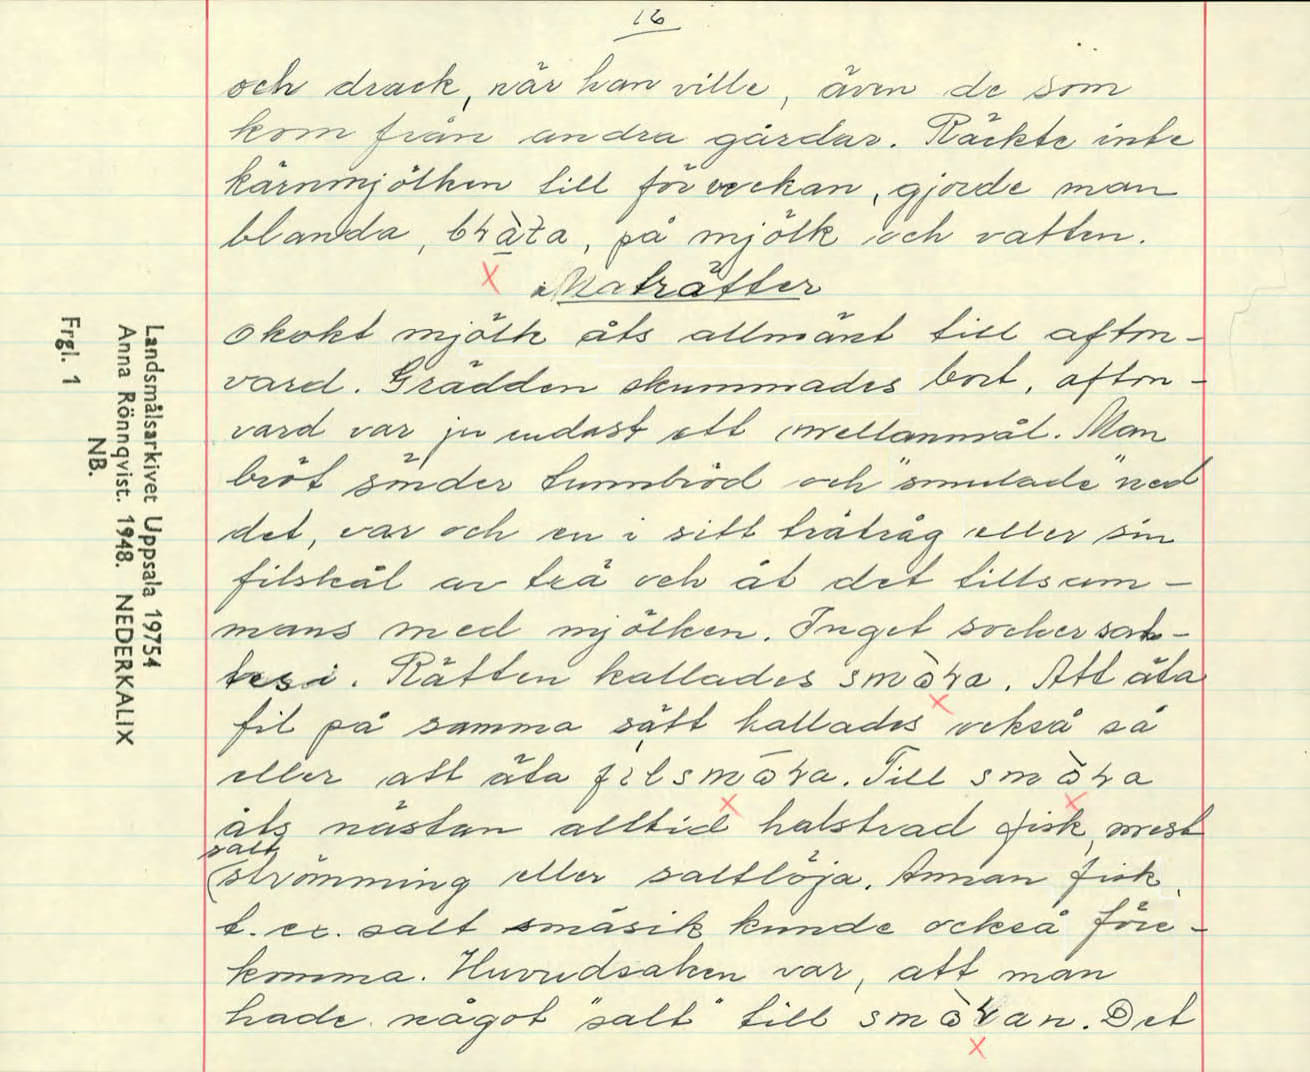 16
och drack, när han ville, även de som
kom från andra gårdar. Räckte inte
kärnmjölken till för veckan, gjorde man
blanda, på mjölk och vatten.
Maträtter
Okokt mjölk åts allmänt till afton-
vard. Grädden skummades bort, afton-
vard var ju endast ett mellanmål. Man
bröt sönder tunnbröd och "smulade" ned
det, var och en i sitt tråtråg eller sin
filskål av trä och åt det tillsam-
mans med mjölken. Inget socker sat-
tes i. Rätten kallades smòra. Att äta
fil på samma sätt kallades också så
eller att äta filsmōra. Till smòra
åts nästan alltid halstrad fisk, mest
salt
strömming eller saltlöja. Annan fisk,
t. ex. salt småsik kunde också före-
komma. Huvudsaken var, att man
hade något "salt" till smòran. Det
Landsmålsarkivet Uppsala 19754
Anna Rönnqvist. 1948. NEDERKALIX
NB.
Frgl. 1